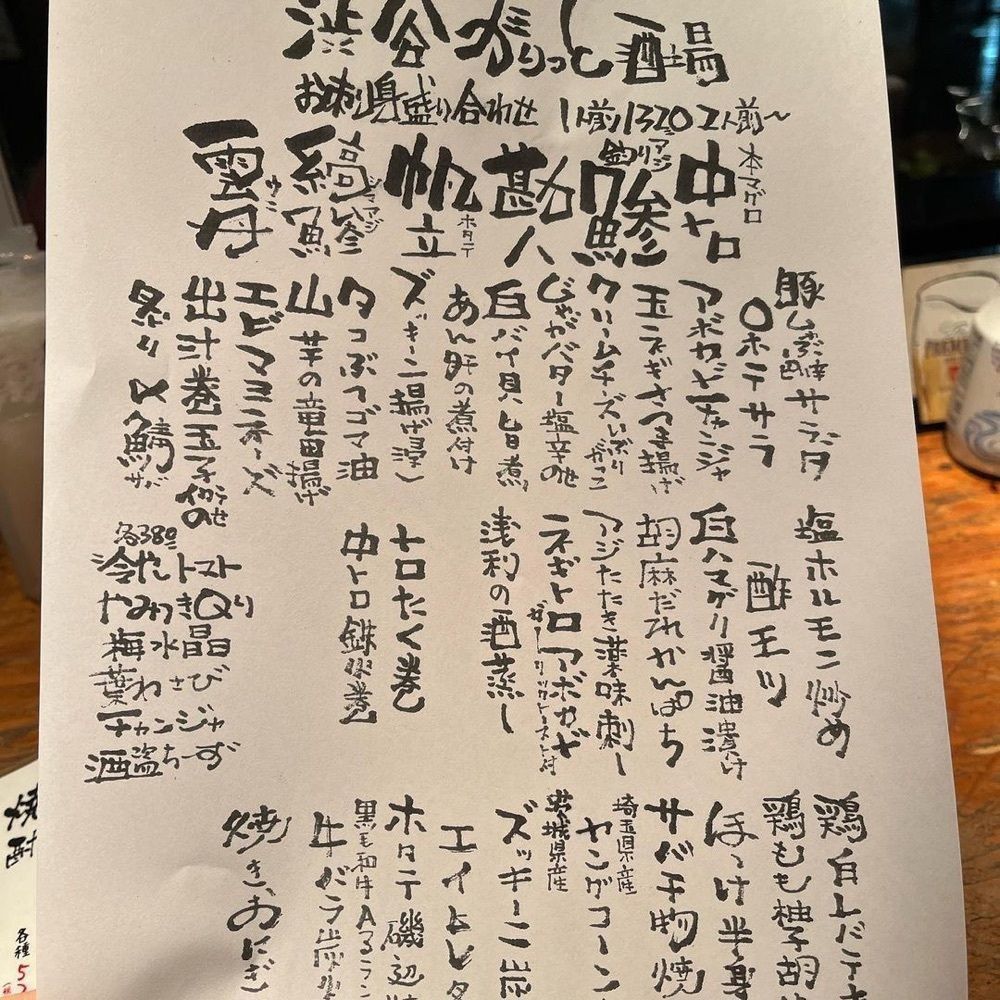 渋谷がりっと酒場
お刺身盛り合わせ 1人前1320 2人前〜
本マグロ
中トロ
釣りアジ
鯵
勘八
帆立
ホタテ
縞鯵
シマアジ
雲丹
ウニ
サラダ
○ホテサラ
アボカドチャンジャ
玉ネギさつま揚げ
クリームチーズいぶりがっこ
じゃがバター塩辛のせ
白バイ貝旨煮
あん肝の煮付け
ズッキーニ揚げ浸し
タコぶつゴマ油
山芋の竜田揚げ
エビマヨネーズ
出汁巻玉子イクラのせ
炙り〆鯖
サバ
塩ホルモン炒め
酢モツ
白ハマグリ醤油漬け
胡麻だれかんぱち
アジたたき薬味刺し
ネギトロアボカド
ガーリックトースト付
浅利の酒蒸し
トロたく巻
中トロ鉄火巻
各380
冷やしトマト
やみつきQり
梅水晶
葉わさび
チャンジャ
酒盗ちーず
鶏白レバー
鶏もも柚子胡
ほっけ半身
サバ干物焼
埼玉県産
ヤングコーン
茨城県産
ズッキーニ炭
エイヒレタ
ホタテ磯辺焼
黒毛和牛A5ラン
牛バラ炭火
焼きおにぎ
焼酎
各種